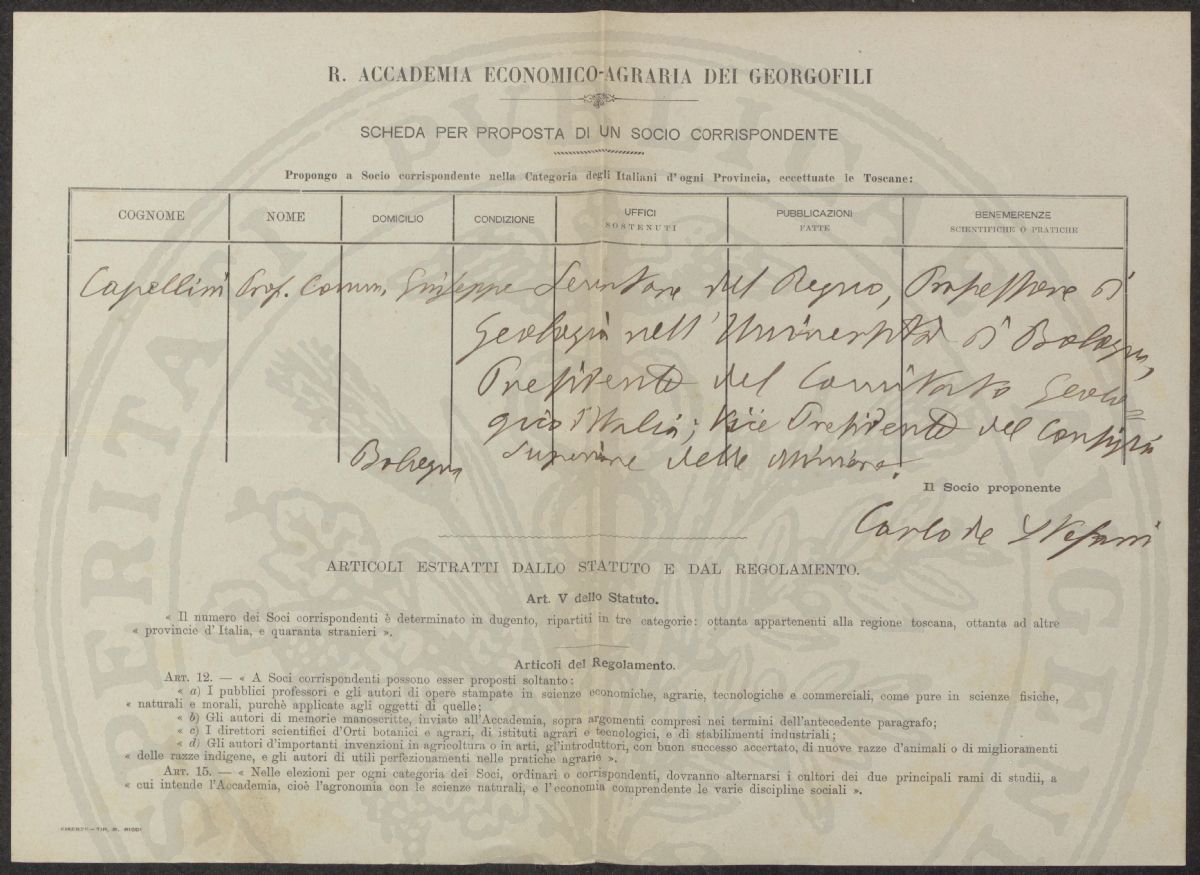 R. ACCADEMIA ECONOMICO-AGRARIA DEI GEORGOFILI
SCHEDA PER PROPOSTA DI UN SOCIO CORRISPONDENTE
Propongo a Socio corrispondente nella Categoria degli Italiani d'ogni Provincia, eccettuate le Toscane:
COGNOME NOME DOMICILIO CONDIZIONE UFFICI SOSTENUTI PUBBLICAZIONI FATTE BENEMERENZE SCIENTIFICHE O PRATICHE
Capellini Prof. Comm. Giuseppe Senatore del Regno, Professore di
Geologia nell'Università di Bologna,
Presidente del Comitato Geolo=
gico d'Italia; Vice Presidente del Consiglio
Bologna Superiore delle Miniere.
Il Socio proponente
Carlo de Stefani
ARTICOLI ESTRATTI DALLO STATUTO E DAL REGOLAMENTO.
Art. V dello Statuto.
« Il numero dei Soci corrispondenti è determinato in dugento, ripartiti in tre categorie: ottanta appartenenti alla regione toscana, ottanta ad altre
« provincie d'Italia, e quaranta stranieri ».
Articoli del Regolamento.
ART. 12. — « A Soci corrispondenti possono esser proposti soltanto:
« a) I pubblici professori e gli autori di opere stampate in scienze economiche, agrarie, tecnologiche e commerciali, come pure in scienze fisiche,
« naturali e morali, purchè applicate agli oggetti di quelle;
« b) Gli autori di memorie manoscritte, inviate all'Accademia, sopra argomenti compresi nei termini dell'antecedente paragrafo;
« c) I direttori scientifici d'Orti botanici e agrari, di istituti agrari e tecnologici, e di stabilimenti industriali;
« d) Gli autori d'importanti invenzioni in agricoltura o in arti, gl'introduttori, con buon successo accertato, di nuove razze d'animali o di miglioramenti
« delle razze indigene, e gli autori di utili perfezionamenti nelle pratiche agrarie ».
ART. 15. — « Nelle elezioni per ogni categoria dei Soci, ordinari o corrispondenti, dovranno alternarsi i cultori dei due principali rami di studii, a
« cui intende l'Accademia, cioè l'agronomia con le scienze naturali, e l'economia comprendente le varie discipline sociali ».
FIRENZE — TIP. M. RICCI